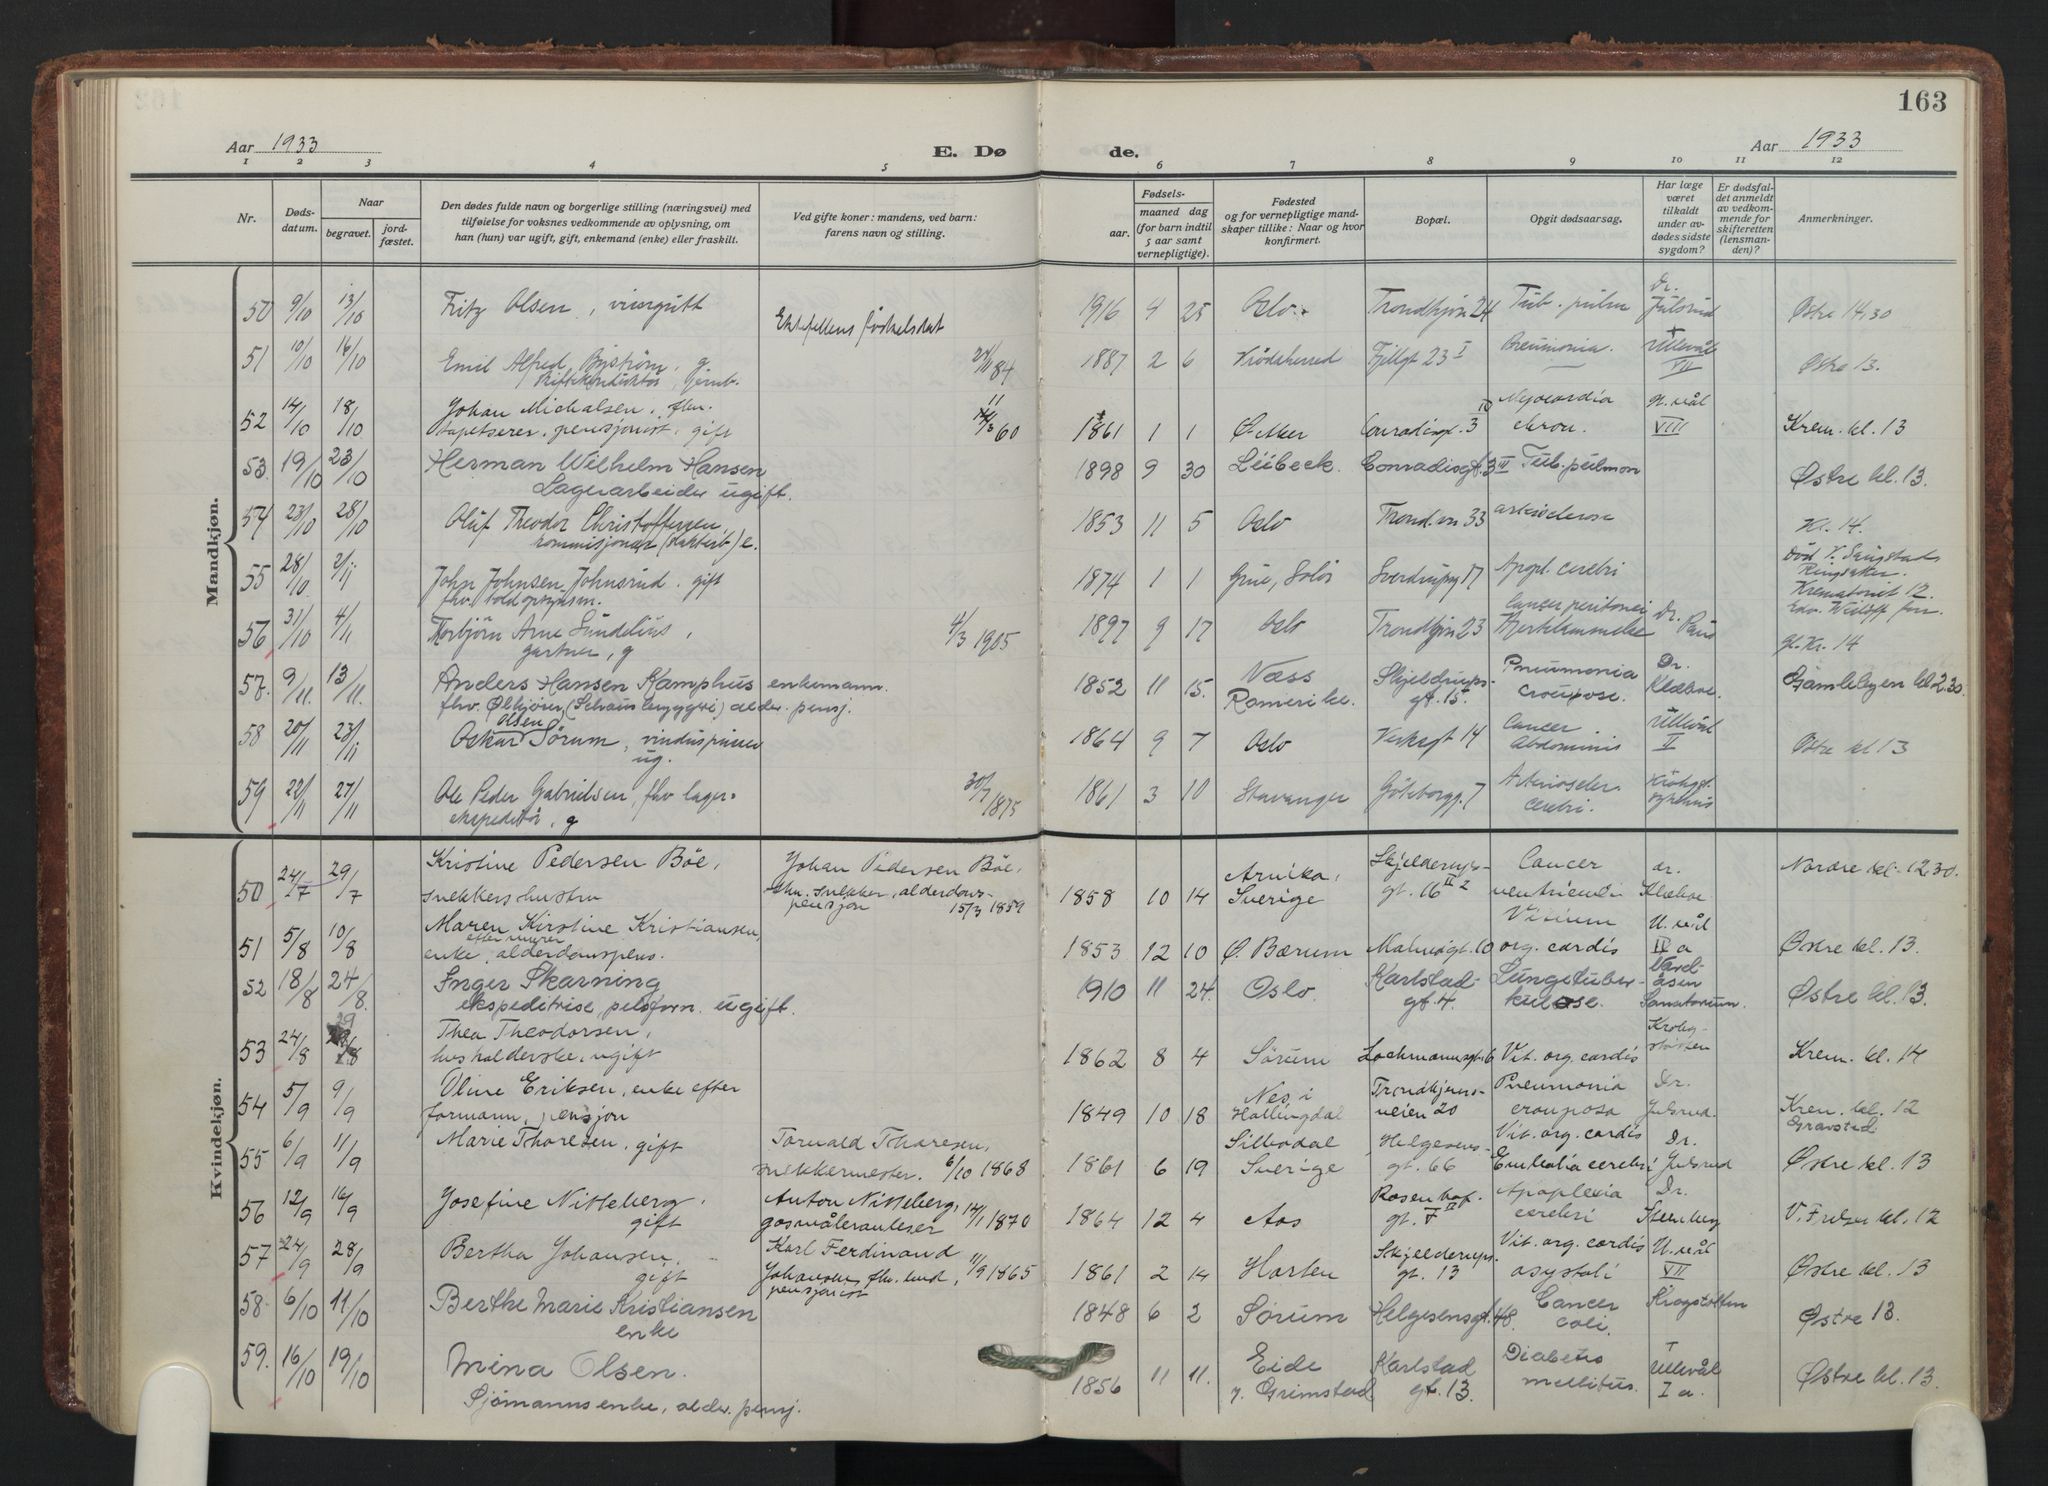 163
Aar 1933
E. Dø
de.
Aar 1933
1 2 3 4 5 6 7 8 9 10 11 12
Nr.
Døds-
datum.
Naar
begravet.
jord-
fæstet.
Den dødes fulde navn og borgerlige stilling (næringsvei) med
tilføielse for voksnes vedkommende av oplysning, om
han (hun) var ugift, gift, enkemand (enke) eller fraskilt.
Ved gifte koner: mandens, ved barn:
farens navn og stilling.
Fødsels-
aar.
maaned
dag
(for barn indtil
5 aar samt
vernepligtige).
Fødested
og for vernepligtige mand-
skaper tillike: Naar og hvor
konfirmert.
Bopæl.
Opgit dødsaarsag.
Har læge
været
tilkaldt
under av-
dødes sidste
sygdom?
Er dødsfal-
det anmeldt
av vedkom-
mende for
skifteretten
(lensman-
den)?
Anmerkninger.
Mandkjøn.
50 9/10 13/10 Fritz Olsen, visergutt 1916 4 25 Oslo. Trondhjv 24 Tub. pulm Dr. Julsrud Østre 14,30
Ektefellens fødselsdat
51 10/10 16/10 Emil Alfred Byström, g 84 1887 2 6 Krødsherred 23 I Pneumonia. Ullevål VII Østre 13.
skiftekonduktør, jernb.
52 14/10 18/10 Johan Michalsen, fhv. 60 1861 1 1 Ø. Aker Conradisgt. 3 IV Myocardia chron. U. vål VIII Krem. kl. 13
tapetserer, pensjonist, gift
53. 19/10 23/10 Herman Wilhelm Hansen 1898 9 30 Lübeck. Conradisgt. 3 III Tub. pulmon Østre kl. 13.
Lagerarbeider ugift.
54 23/10 28/10 Oluf Theodor Christoffersen, 1853 11 5 Oslo Trond.vn 33 Kl. 14.
kommisjonær e.
55 28/10 2/11 John Johnsen Johnsrud. gift 1874 1 1 Grue, Solør Sverdrupsg 17 Apopl. cerebri Død
fhv. toldopsynsm. Ringsaker.
Krematoriet 12.
56 31/10 4/11 Thorbjörn Arne Sundelius, 4/3 1905 1897 9 17 Oslo Trondhjv 23 Cancer peritonei Dr. Paus
gartner, g Hjertelammelse Gl. Kr. 14
57. 9/11. 13/11. Anders Hansen Kamphus enkemann. 1852 11 15. Næss Romerike. Skjeldrups-gt. 15. Pneumonia croupose. Dr. Klæboe. Gamlebyen kl 2.30.
fhv. Ølkjører (Schous bryggeri) alder. pensj.
58 20/11 23/11 Oskar Olsen Sørum, vinduspusser 1864 9 7 Oslo Verksgt 14 Cancer Abdominis Ullevål II Østre kl 13
ug.
59 22/11 27/11 Ole Peder Gabrielsen, fhv lager- 30/7 1875 1861 3 10 Stavanger Göteborgg. 7 Arterioscler. cerebri.
ekspeditør, g
Kvindekjøn.
50 24/7 29/7 Kristine Pedersen Böe, Johan Pedersen Böe, 1858 10 14 Arvika, Sverige Skjelderups-gt. 16 II 2 Cancer ventriculi dr. Klæboe Nordre kl. 12.30.
snekkershustru fhv. snekker, alderdoms-pensjon 15/3 1859
51 5/8 10/8 Maren Kirstine Kristiansen, 1853 12 10 Ø. Bærum Malmögt. 10 Vitium org. cardis U. vål IV a Østre kl. 13.
enke efter murer, alderdomspens.
52 18/8 24/8 Inger Skarning 1910 11 24. Oslo. Karlstad-gt. 4. Lungetuber-kulose. Vard-åsen Sanatorium. Østre kl. 13.
ekspeditrise, pelsforr. ugift.
53 24/8 29/8 Thea Theodorsen, 1862 8 4 Sörum Lochmannsgt. 6 Vit. org. cardis Krohg-støtten Krem. kl. 14
husholderske, ugift
54 5/9 9/9 Oline Eriksen, enke efter 1849 10 18 Nes i Hallingdal Trondhjems-veien 20 Pneumonia crouposa Dr. Julsrud. Krem. kl. 12
formann, pensjon Gravsted
55 6/9 11/9 Marie Thoresen, gift Torvald Thoresen, 1861 6 19 Silbodal Sverige Helgesens-gt. 66 Vit. org. cardis Embolia cerebri Dr. Julsrud Østre kl. 13
snekkermester. 6/10 1868
56 12/9 16/9 Josefine Nitteberg, gift Anton Nitteberg, gasmåleravleser 14/1 1870 1864 12 4 Aas Rosenhof-gt. V II Apoplexia cerebri Dr. Steenberg V. Frelser kl. 12
57 24/9 28/9 Bertha Johansen, gift Karl Ferdinand Johansen, fhv. bud, pensjonist 11/9 1865 1861 2 14 Horten Skjelderups-gt. 13 Vit. org. cardis asystoli U. vål VII Østre kl. 13
58 6/10 11/10 Berthe Marie Kristiansen 1848 6 2 Sørum Helgesensgt. 48. Cancer coli. Krogstøtten Østre 13.
enke
59. 16/10 19/10 Mina Olsen. 1856 11 11. Eide p. Grimstad Karlstad gt. 13. Diabetes mellitus. Ullevål I a. Østre kl. 13.
Sjømannsenke, alder. pensj.